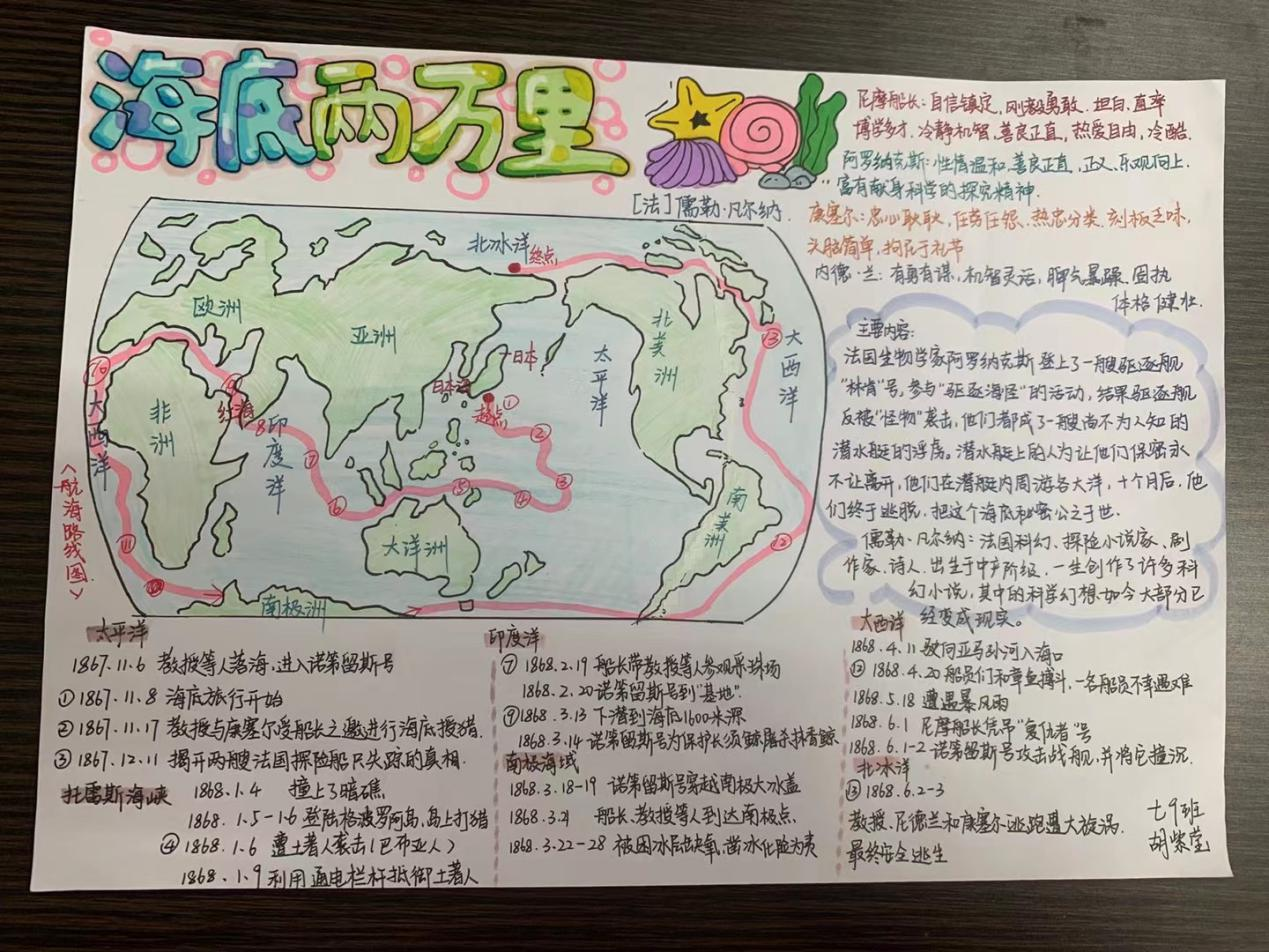 海底两万里
[法]儒勒·凡尔纳.
尼摩船长:自信镇定,刚毅勇敢.坦白,直率
博学多才.冷静机智,善良正直,热爱自由,冷酷.
阿罗纳克斯:性情温和,善良正直,正义、乐观向上,
富有献身科学的探究精神.
康塞尔:忠心耿耿,任劳任怨.热忠分类.刻板乏味,
头脑简单,拘泥于礼节
内德·兰:有勇有谋,机智灵活,脾气暴躁.固执
体格健壮.
主要内容:
法国生物学家阿罗纳克斯登上了一艘驱逐舰
"林肯"号,参与"驱逐海怪"的活动,结果驱逐舰
反被"怪物"袭击,他们都成了一艘尚不为人知的
潜水艇的浮虏。潜水艇上的人为让他们保密永
不让离开,他们在潜艇内周游各大洋,十个月后,他
们终于逃脱.把这个海底秘密公之于世.
儒勒·凡尔纳:法国科幻、探险小说家、剧
作家、诗人.出生于中产阶级,一生创作了许多科
幻小说,其中的科学幻想如今大部分已
经变成现实。
北冰洋
终点
欧洲
亚洲
北美洲
大西洋
⑬
日本
太平洋
日本海
起点
①
②
③
④
⑤
⑥
⑦
8
⑨
⑩
红海
印度洋
非洲
大西洋
⑪
大洋洲
南美洲
⑫
南极洲
<航海路线图.>
太平洋
1867.11.6 教授等人落海,进入诺第留斯号
①1867.11.8 海底旅行开始
②1867.11.17 教授与康塞尔受船长之邀进行海底狩猎.
③1867.12.11 揭开两艘法国探险船只失踪的真相.
托雷斯海峡 1868.1.4 撞上了暗礁
1868.1.5-1.6 登陆格波罗阿岛,岛上打猎
④1868.1.6 遭土著人袭击(巴布亚人)
1868.1.9 利用通电栏杆抵御土著人
印度洋
⑦1868.2.19 船长带教授等人参观采珠场
1868.2.20 诺第留斯号到"基地".
⑨1868.3.13 下潜到海底1600米深
1868.3.14 诺第留斯号为保护长须鲸屠杀抹香鲸
南极海域
1868.3.18-19 诺第留斯号穿越南极大冰盖
1868.3.21 船长、教授等人到达南极点.
1868.3.22-28 被困冰层缺氧,凿冰化险为夷
大西洋
1868.4.11 驶向亚马孙河入海口
⑫1868.4.20 船员们和章鱼搏斗,一名船员不幸遇难
1868.5.18 遭遇暴风雨
1868.6.1 尼摩船长凭吊"复仇者"号
1868.6.1-2 诺第留斯号攻击战舰,并将它撞沉.
北冰洋
⑬1868.6.2-3
教授、尼德兰和康塞尔逃跑遇大旋涡.
最终安全逃生
七9班
胡紫莹